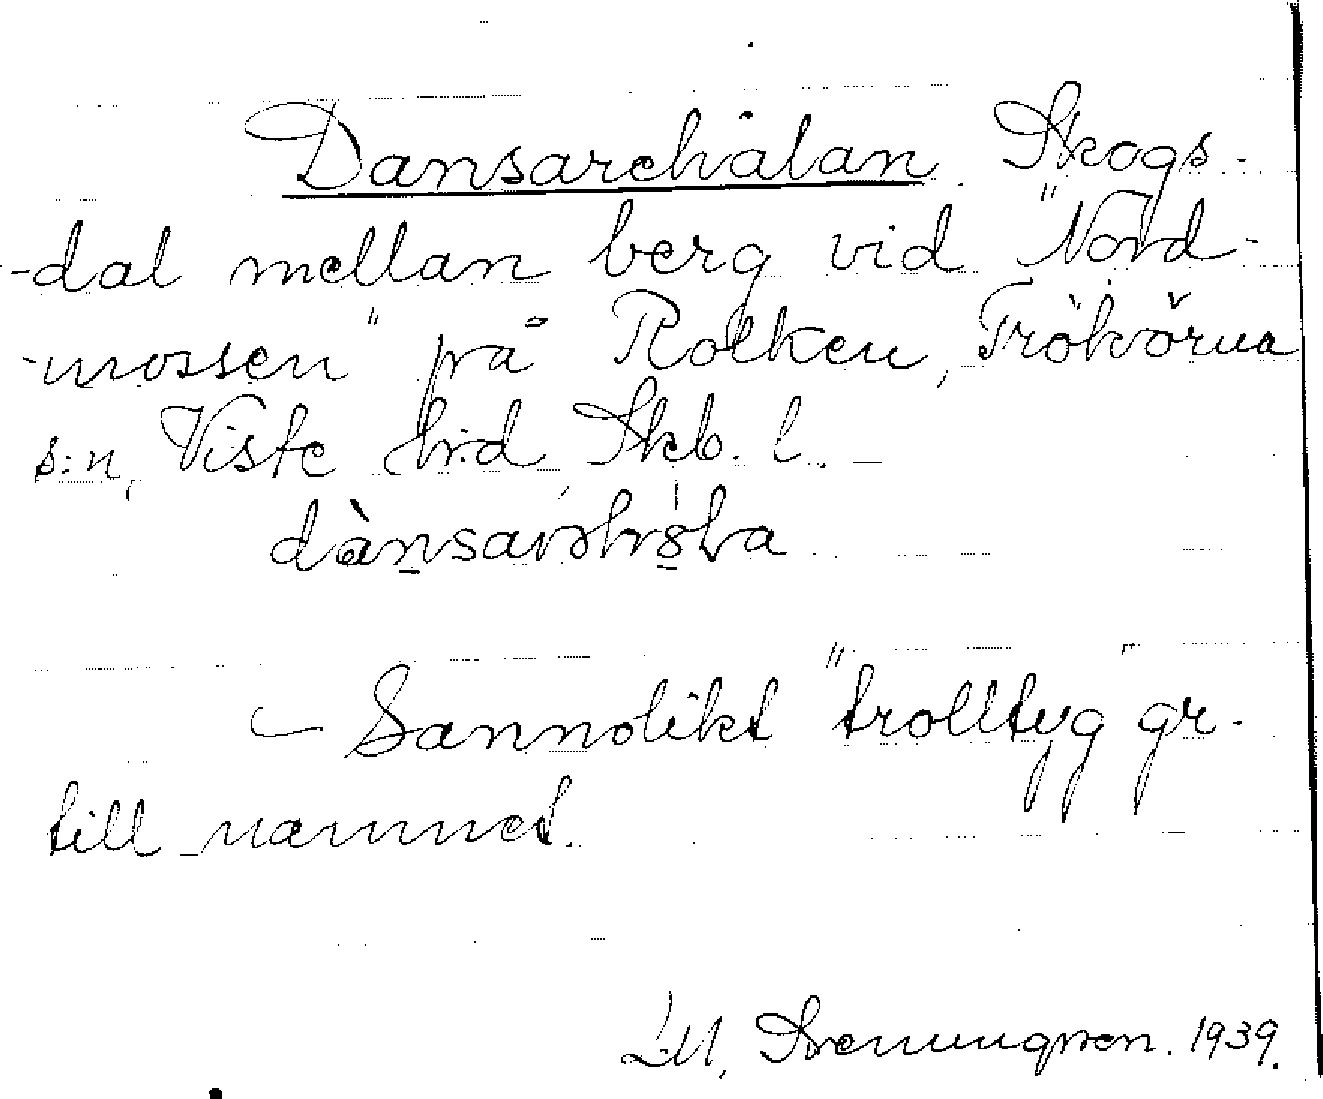 Dansarehålan. Skogs-
-dal mellan berg vid "Nord-
-mossen" på Rolken, Trökörna
s:n, Viste h:d, Skb. l. —
— Sannolikt "trolltyg" gr.
till namnet.
1939.